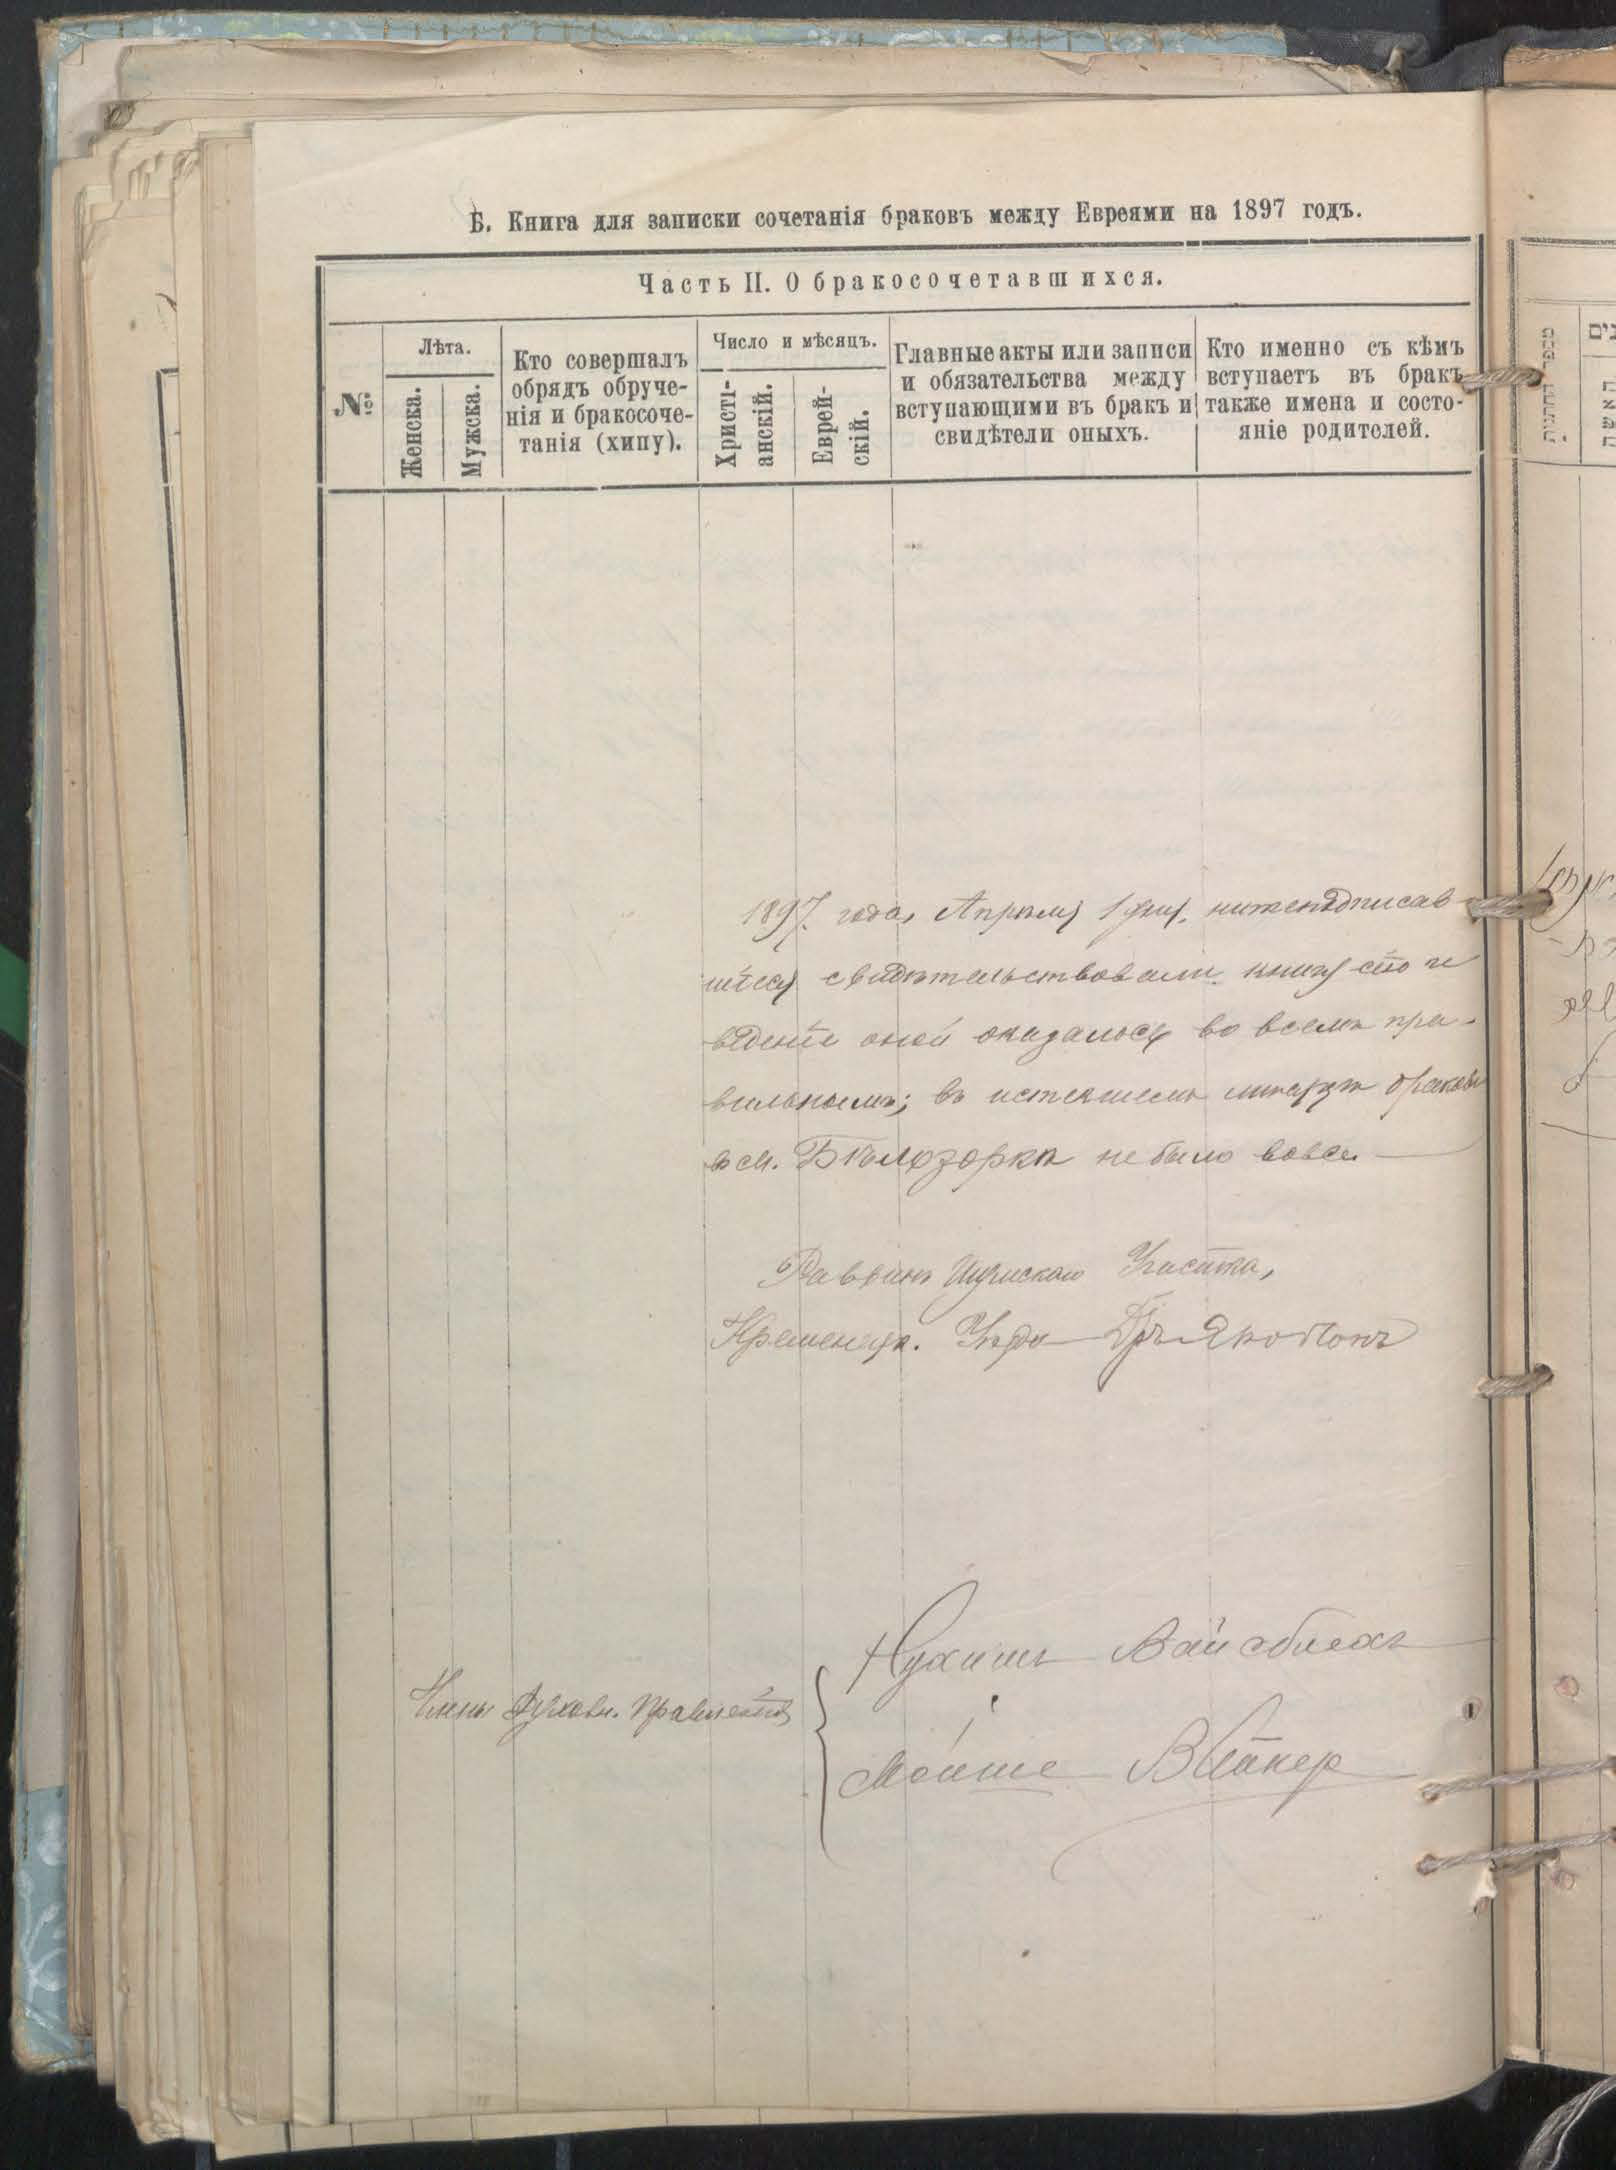 Б. Книга для записки сочетанія браковъ между Евреями на 1897 годъ.
Часть II. О бракосочетавшихся.
№
Лѣта.
Женска.
Мужска.
Кто совершалъ
обрядъ обруче-
нія и бракосоче-
танія (хипу).
Число и мѣсяцъ.
Христі-
анскій.
Еврей-
скій.
Главные акты или записи
и обязательства между
вступающими въ бракъ и
свидѣтели оныхъ.
Кто именно съ кѣмъ
вступаетъ въ бракъ
также имена и состо-
яніе родителей.
1897 года, Апрѣля 1 дня, нижеподписав-
шіеся свидѣтельствовали книгу сію и
веденіе оной оказалось во всемъ пра-
вильнымъ; въ истекшемъ мѣсяцѣ браковъ
въ м. Бѣлозоркѣ не было вовсе.
Раввинъ Шумскаго Участка,
Кременецк. Уѣзда
Члены Духовн. Правленія
Нухимъ Вайсблехъ
Мойше